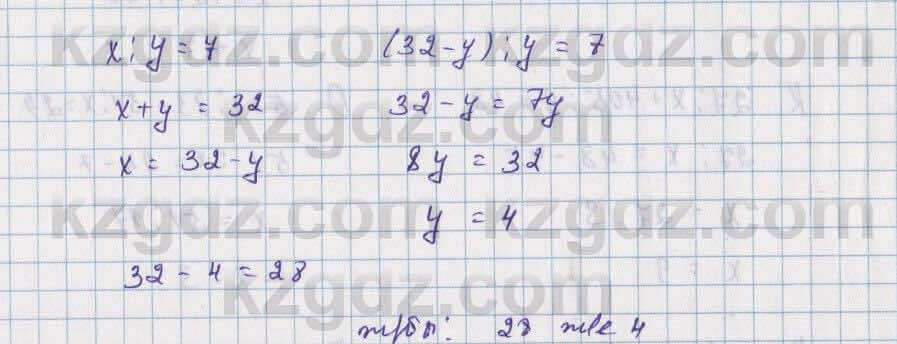 x : y = 7
x + y = 32
x = 32 - y
(32 - y) : y = 7
32 - y = 7y
8y = 32
y = 4
32 - 4 = 28
ж/бы: 28 және 4
kzgdz.com kzgdz.com
kzgdz.com
kzgdz.com kzgdz.com
kzgdz.com